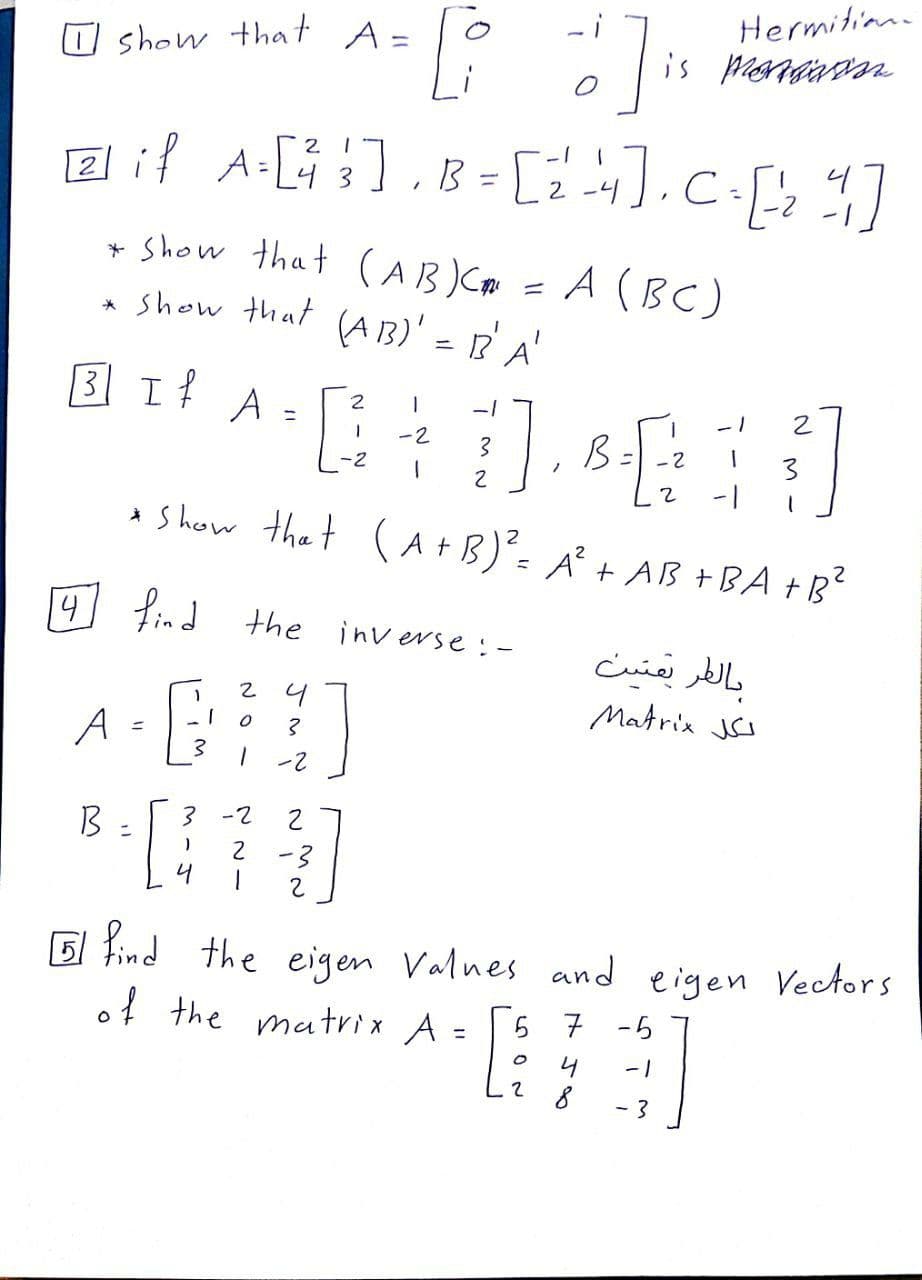 [1] show that A = [0 -i; i 0] is Hermitian
[2] if A = [2 1; 4 3], B = [-1 1; 2 -4], C = [1 4; -2 -1]
* show that (AB)C = A(BC)
* show that (AB)' = B'A'
[3] If A = [2 1 -1; 1 -2 3; -2 1 2], B = [1 -1 2; -2 1 3; 2 -1 1]
* show that (A+B)² = A² + AB + BA + B²
[4] find the inverse :-
بالطريقتين
لكل Matrix
A = [1 2 4; -1 0 3; 3 1 -2]
B = [3 -2 2; 1 2 -3; 4 1 2]
[5] find the eigen Values and eigen Vectors
of the matrix A = [5 7 -5; 0 4 -1; 2 8 -3]